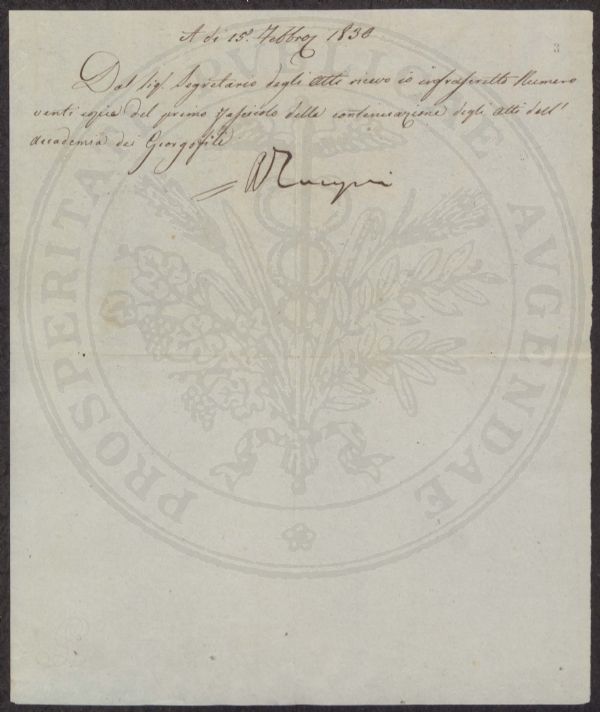 3
A di 15. Febbro 1830
Dal Sig. Segretario degli Atti ricevo io infrascritto Numero
venti copie del primo fascicolo della continuazione degli Atti dell'
Accademia dei Georgofili
PROSPERITATI PVBLICAE AVGENDAE